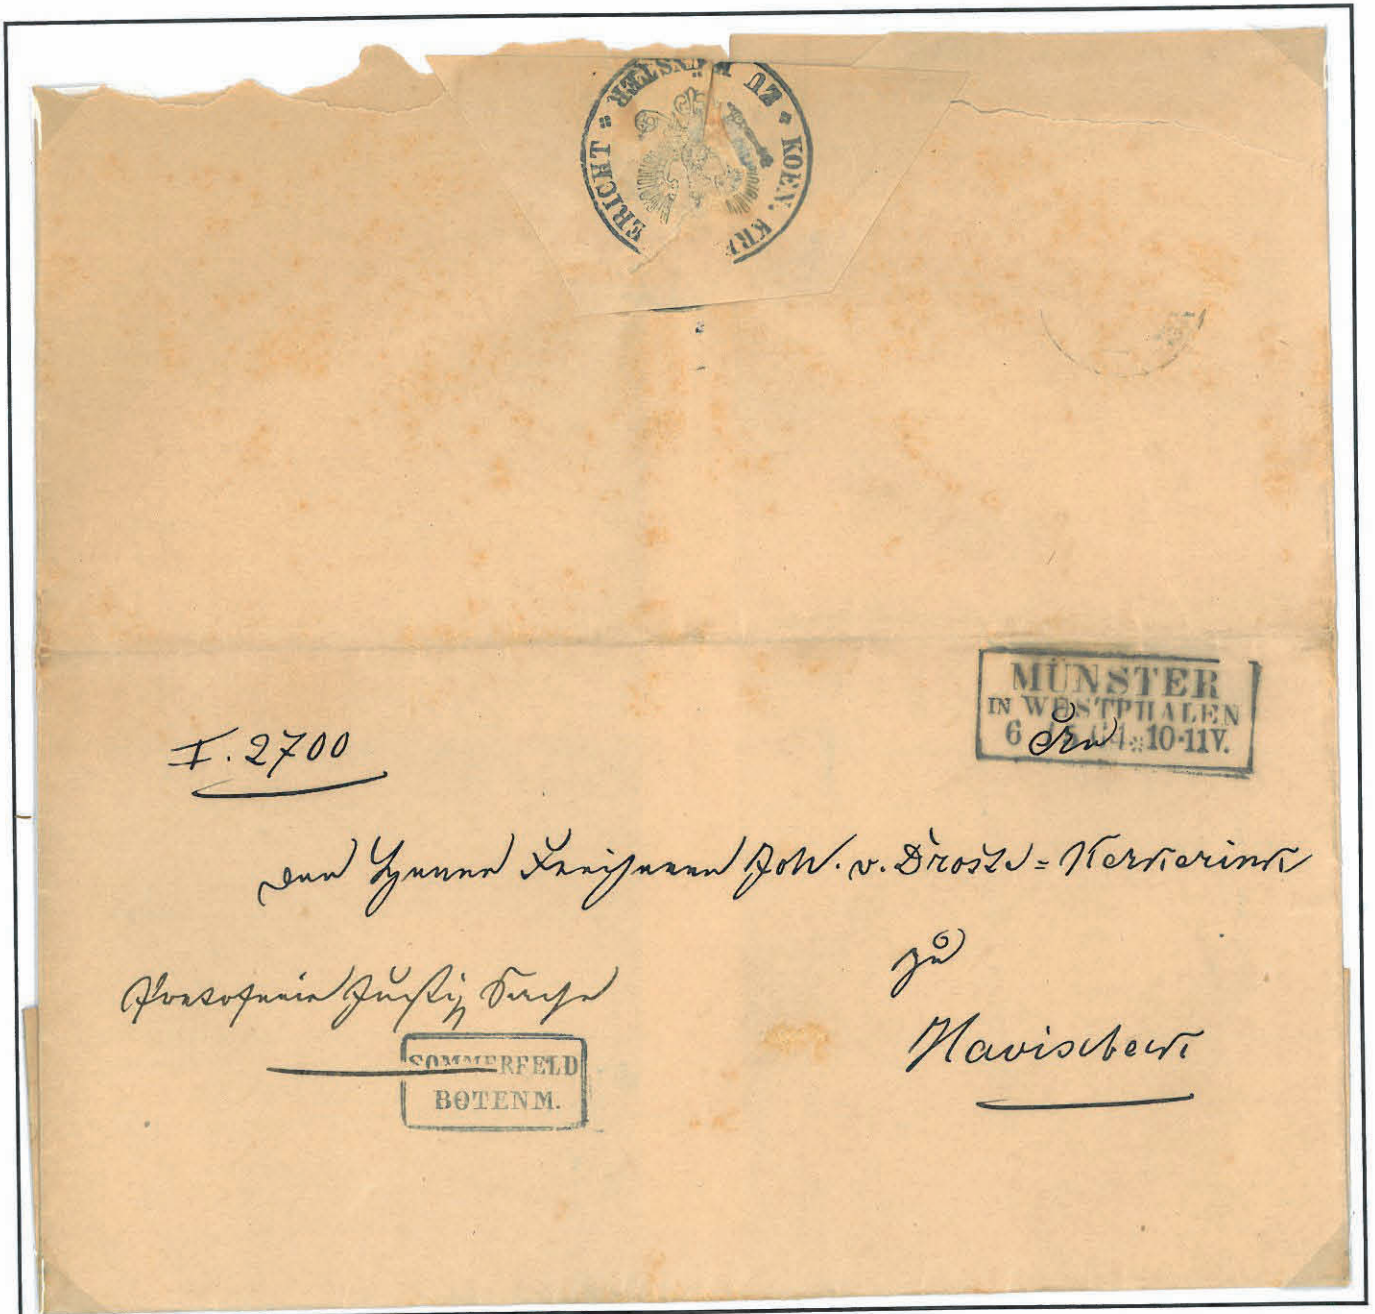 KOEN. KR
ERICHT * ZU MÜNSTER *
MÜNSTER
IN WESTPHALEN
10-11V.
I. 2700
den Herrn Freiherrn Joh. v. Droste=Kerkerink
zu
Portofreie Justiz Sache
Havixbeck
SOMMERFELD
BOTENM.